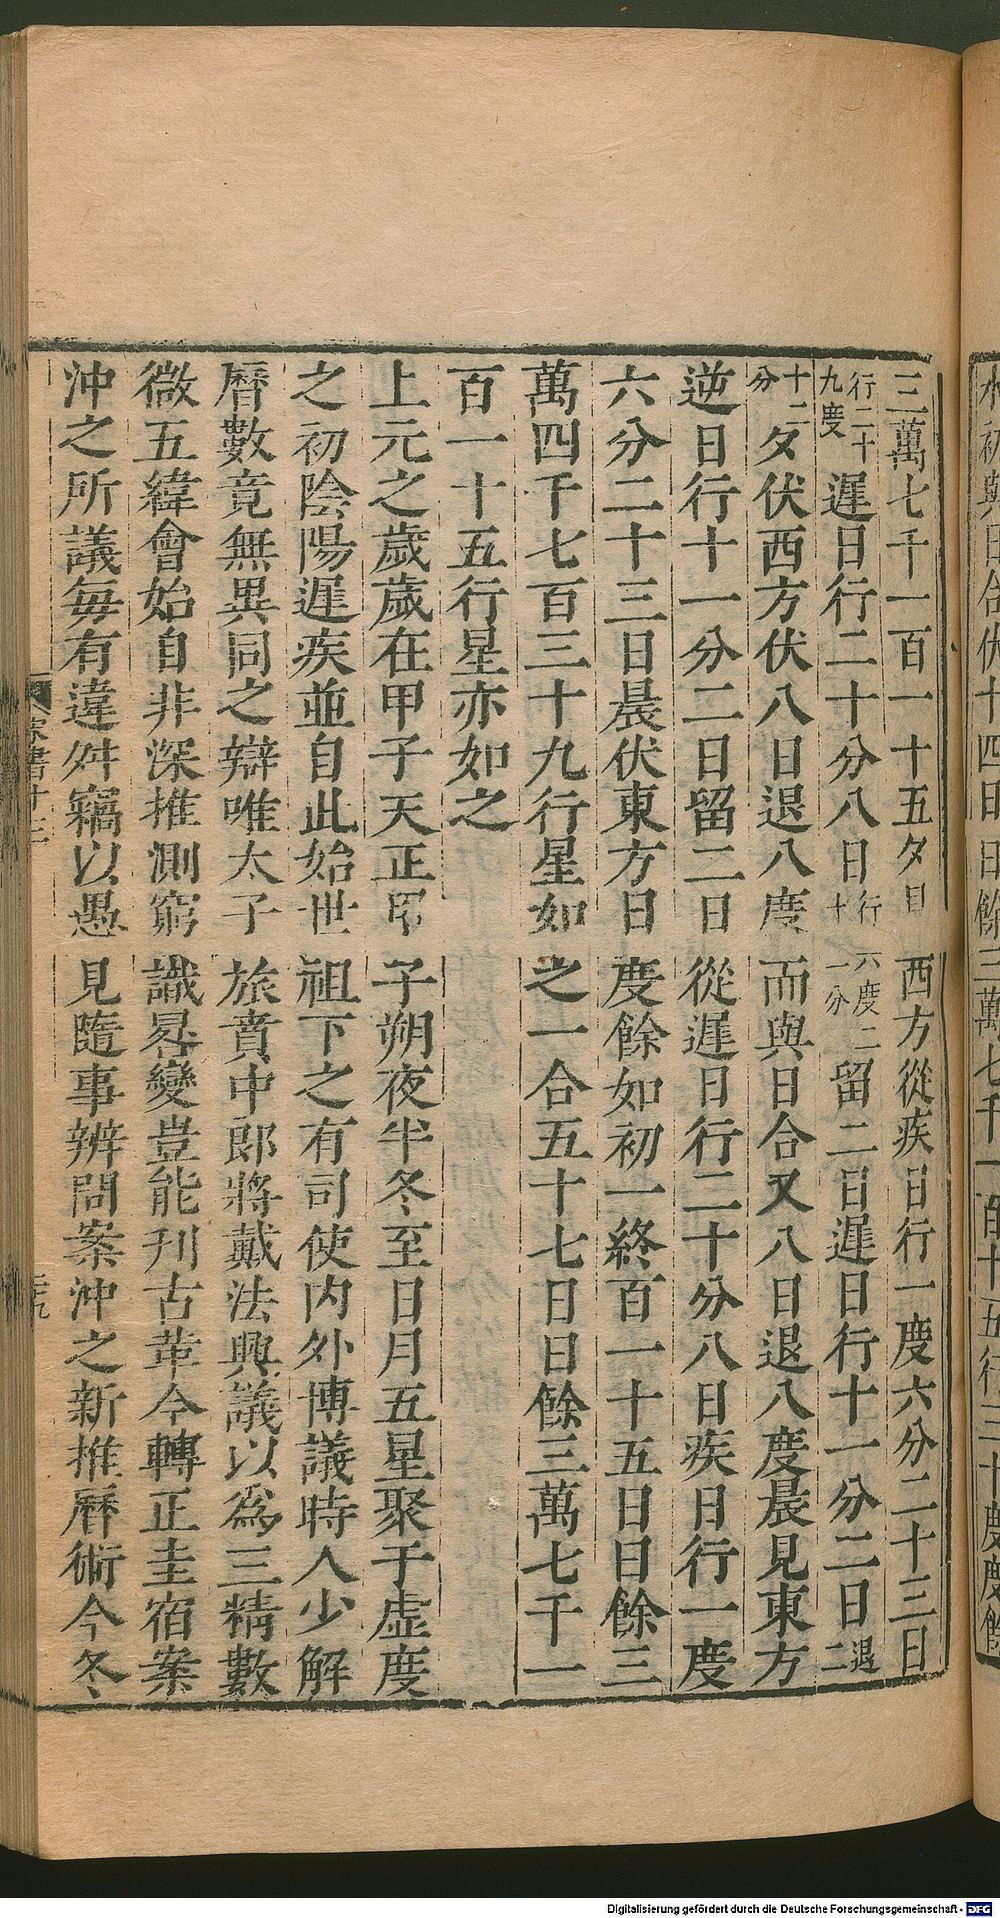 水初與日合伏十四日日餘三萬七千一百十五行三十度度餘
三萬七千一百一十五夕見西方從疾日行一度六分二十三日
行二十九度遲日行二十分八日行十六度二一分留二日遲日行十一分二日退二
十二分夕伏西方伏八日退八度而與日合又八日退八度晨見東方
逆日行十一分二日留二日從遲日行二十分八日疾日行一度
六分二十三日晨伏東方日度餘如初一終百一十五日日餘三
萬四千七百三十九行星如之一合五十七日日餘三萬七千一
百一十五行星亦如之
上元之歲歲在甲子天正甲子朔夜半冬至日月五星聚于虛度
之初陰陽遲疾並自此始世祖下之有司使內外博議時人少解
曆數竟無異同之辯唯太子旅賁中郎將戴法興議以爲三精數
微五緯會始自非深推測窮識晷變豈能刊古革今轉正圭宿案
沖之所議每有違舛竊以愚見隨事辨問案沖之新推曆術今冬
宋書十三
三九
Digitalisierung gefördert durch die Deutsche Forschungsgemeinschaft - DFG